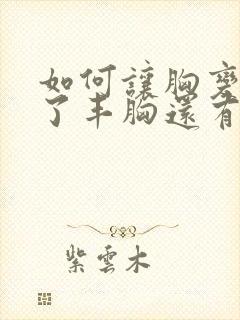 如何讓胸變
了丰胸還有
紫雲木